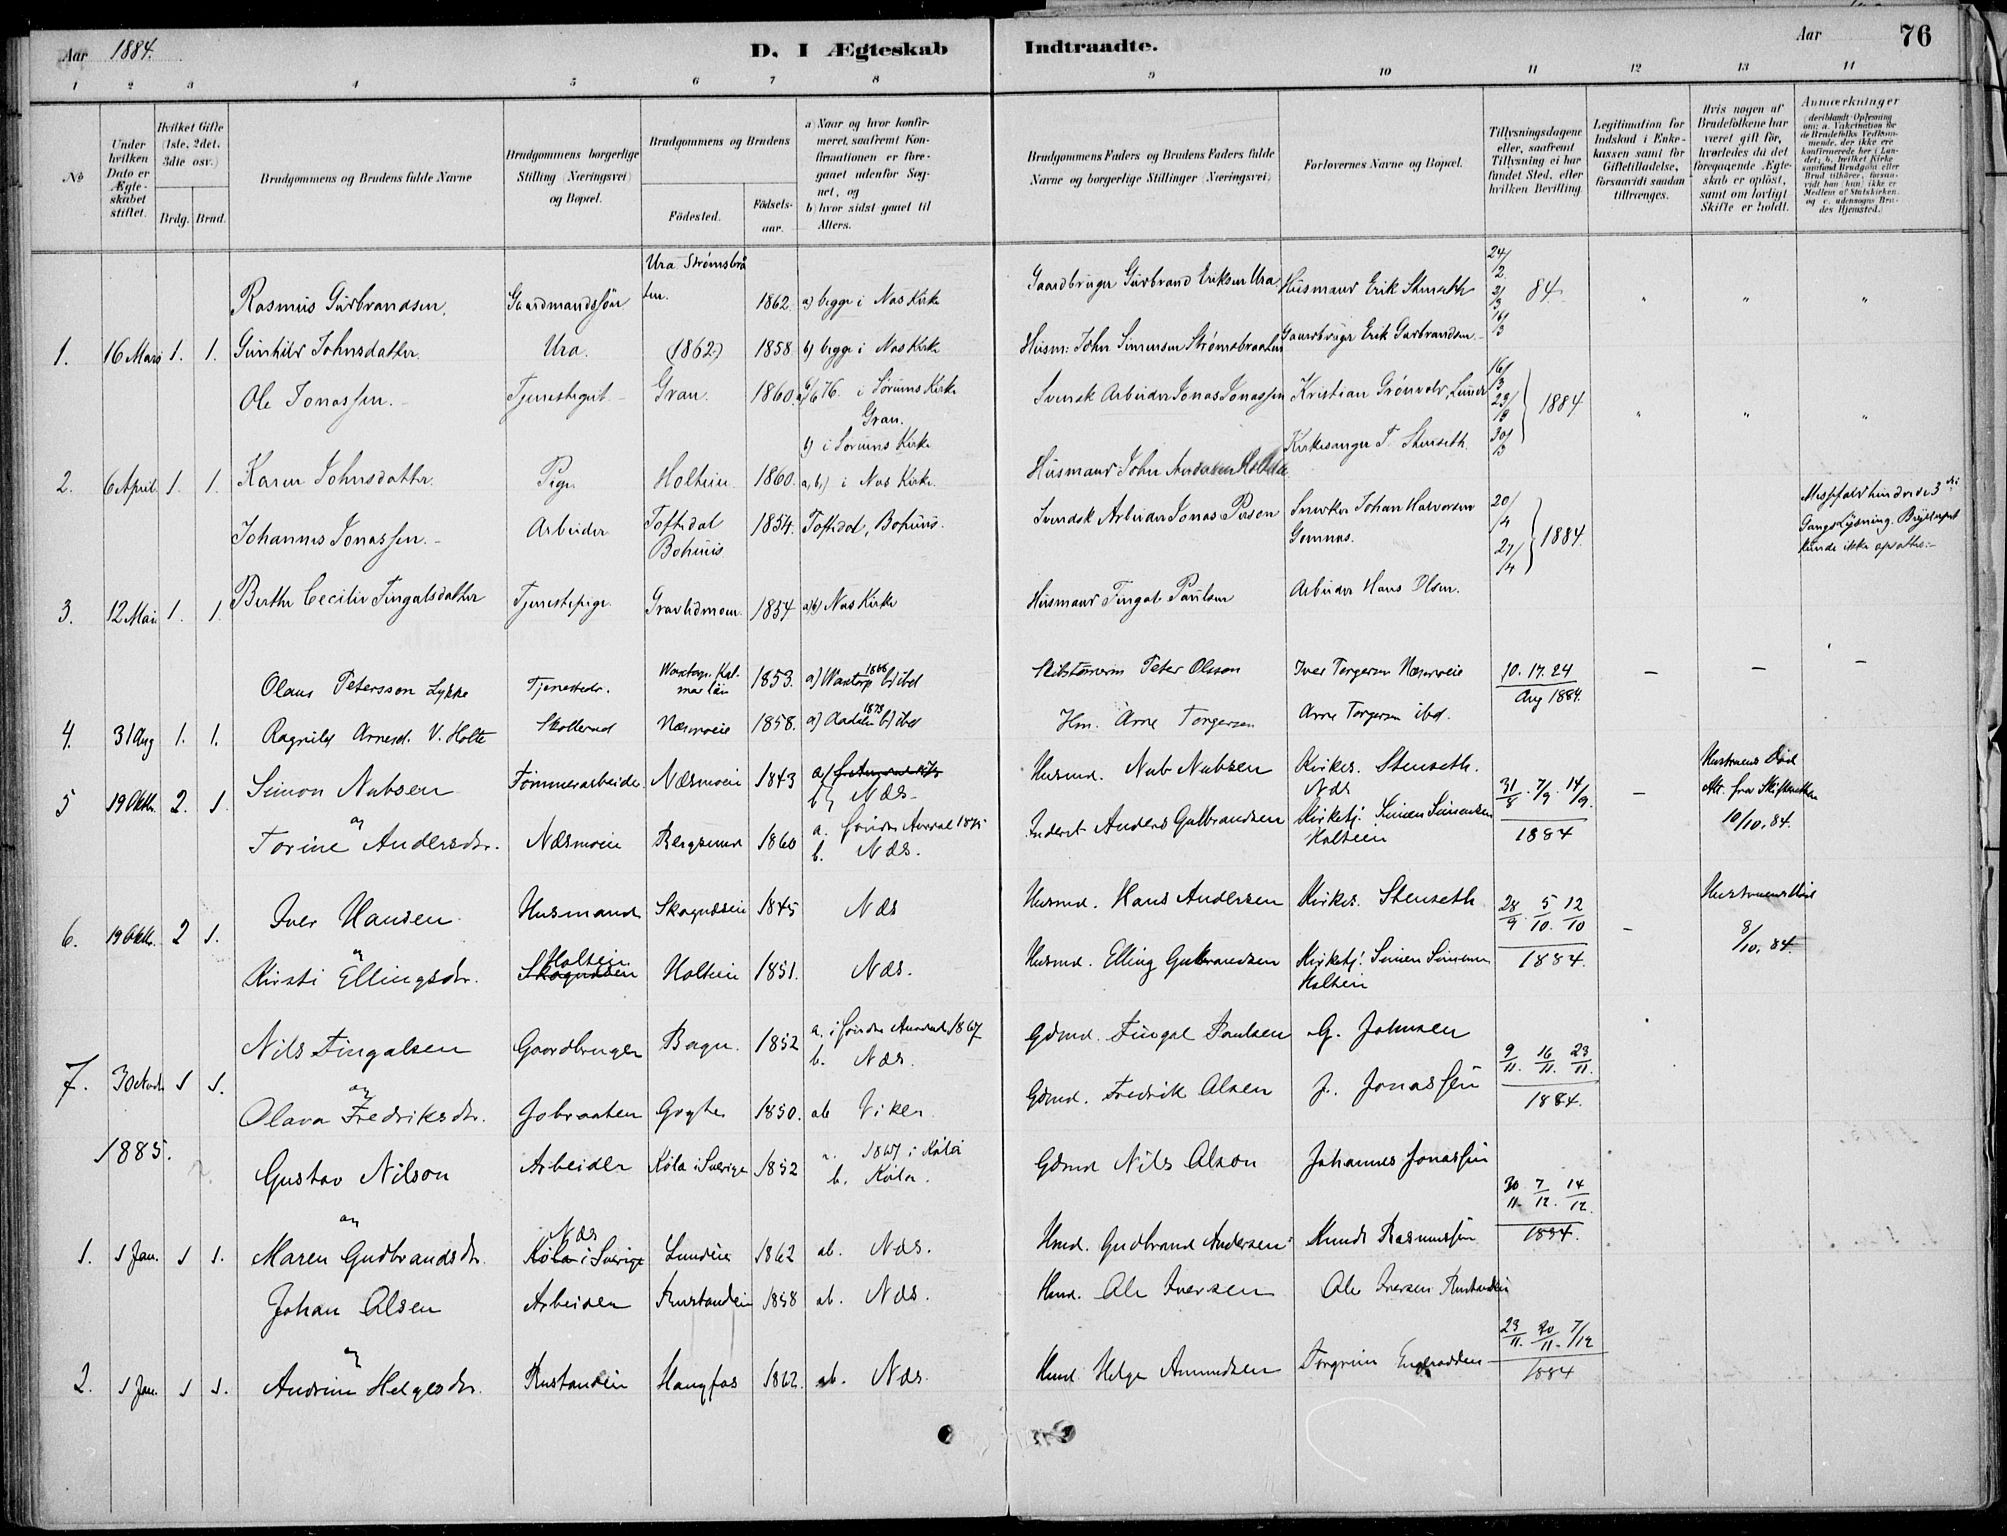 Aar 1884.
D. I Ægteskab Indtraadte.
Aar 76
1 2 3 4 5 6 7 8 9 10 11 12 13 14
No
Under hvilken Dato er Ægteskabet stiftet.
Hvilket Gifte (1ste, 2det, 3die osv.)
Brdg. Brud.
Brudgommens og Brudens fulde Navne
Brudgommens borgerlige Stilling (Næringsvei) og Bopæl.
Brudgommens og Brudens
Födested. Födselsaar.
a) Naar og hvor konfirmeret, saafremt Konfirmationen er foregaaet udenfor Sognet, og
b) hvor sidst gaaet til Alters.
Brudgommens Faders og Brudens Faders fulde Navne og borgerlige Stillinger (Næringsvei)
Forlovernes Navne og Bopæl.
Tillysningsdagene eller, saafremt Tillysning ei har fundet Sted, efter hvilken Bevilling.
Legitimation for Indskud i Enkekassen samt for Giftetilladelse, forsaavidt saadan tiltrænges.
Hvis nogen af Brudefolkene har været gift för, hvorledes da det foregaaende Ægteskab er oplöst, samt om lovligt Skifte er holdt.
Anmærkninger
Ura Strømsbråten.
Rasmus Gurbrandsen. Gaardmandssøn 1862. a) begge i Næs Kirke Gaardbruger Gurbrand Eriksen Ura. Husmand Erik Stenseth 24/2 2/3 16/3 84 " " "
1. 16 Mars 1. 1. Gunhild Johnsdatter. Ura. (1862) 1858 b) begge i Næs Kirke Husm: John Simensen Strømsbraaten Gaardbruger Erik Gurbrandsen
Ole Jonassen. Tjenestegut Gran. 1860. a) 6/76. i Sørums Kirke Gran. Svensk Arbeider Jonas Jonassen Kristian Grønvold, Lunder 16/3 23/3 30/3 1884 " " "
b) i Sørums Kirke Kirkesanger T. Stenseth.
2. 6 April. 1. 1. Karen Johnsdatter. Pige Holteie 1860. a, b,) i Næs Kirke. Husmand John Andersen Holteie
Johannes Jonassen. Arbeider Toftedal Bohuus 1854. Toftedal, Bohuus. Svendsk Arbeider Jonas Person Snerker Johan Halvorsen Gomnæs. 20/4 27/4 1884. Messfald hindrede 3die Gangs Lysning. Bryllupet kunde ikke opsættes.
3. 12 Mai 1. 1. Berthe Cecilie Fingalsdatter Tjenestepige. Gravlidmoen. 1854 a) b) Næs Kirke Husmand Fingal Paulsen Arbeider Hans Olsen.
Olaus Petersson Lykke Tjenestedr. Kalmar län 1853. a) Waxtorp 1868 b) ibd Peter Olsson Iver Torgersen Næsmoeie 10. 17. 24 Aug 1884. — — —
4. 31 Aug 1. 1. Ragnild Arnesd. V. Holte Skollerud Næsmoeie 1858. a) Aadalen 1873 b) ibd Hm. Arne Torgersen Arne Torgersen ibd.
5 19 Oktbr. 2. 1. Simon Nubsen Tømmerarbeider Næsmoeie 1843 a) b) Næs Husmd. Nub Nubsen Kirkes. Stenseth. Næs 31/8. 7/9. 14/9. 1884 — Hustruens Död Att. fra Skifteretten 10/10. 84.
og
Torine Andersdr. Næsmoeie Bergsund 1860 a. Søndre Aurdal 1875 b. Næs. Inderst Anders Gulbrandsen Kirketj. Simen Simensen Holteien
6. 19 Oktb. 2 1. Iver Hansen Husmand Skagnæseie 1845 Næs Husmd. Hans Andersen Kirkes. Stenseth 28/9. 5/10. 12/10 1884. — Hustruens Död 8/10. 84
og
Kirsti Ellingsdr. Holteie Skagnæseie Holteie 1851. Næs. Husmd. Elling Gulbrandsen Kirketj. Simen Simensen Holteien
7. 30 Novbr. 1 1. Nils Fingalsen Gaardbruger Bagn. 1852 a. i Søndre Aurdal 1867 b. Næs. Gdmd. Fingal Paulsen G. Johnsen 9/11. 16/11. 23/11. 1884.
og
Olava Fredriksdr. Jobraaten 1850. ab Viker Gdmd. Fredrik Olsen J. Jonassen
1885.
Gustav Nilson Arbeider Köla i Sverige 1852 a. 1867 i Köla b. Köla. Gdmd Nils Olson Johannes Jonassen 30/11. 7/12. 14/12. 1884.
og
1. 1 Jan. 1 1. Maren Gudbrandsdr. Næs Köla i Sverige Lundeie 1862 ab. Næs. Hmd. Gudbrand Andersen Knud Rasmussen
Johan Olsen Arbeider Rustandeie 1858 ab. Næs. Hmd. Ole Iversen Ole Iversen Rustandeie 23/11. 30/11. 7/12 1884
og
2. 1 Jan. 1 1. Andrine Helgesdr. Rustandeie Haugfos 1862. ab. Næs. Hmd. Helge Amundsen Torgrim